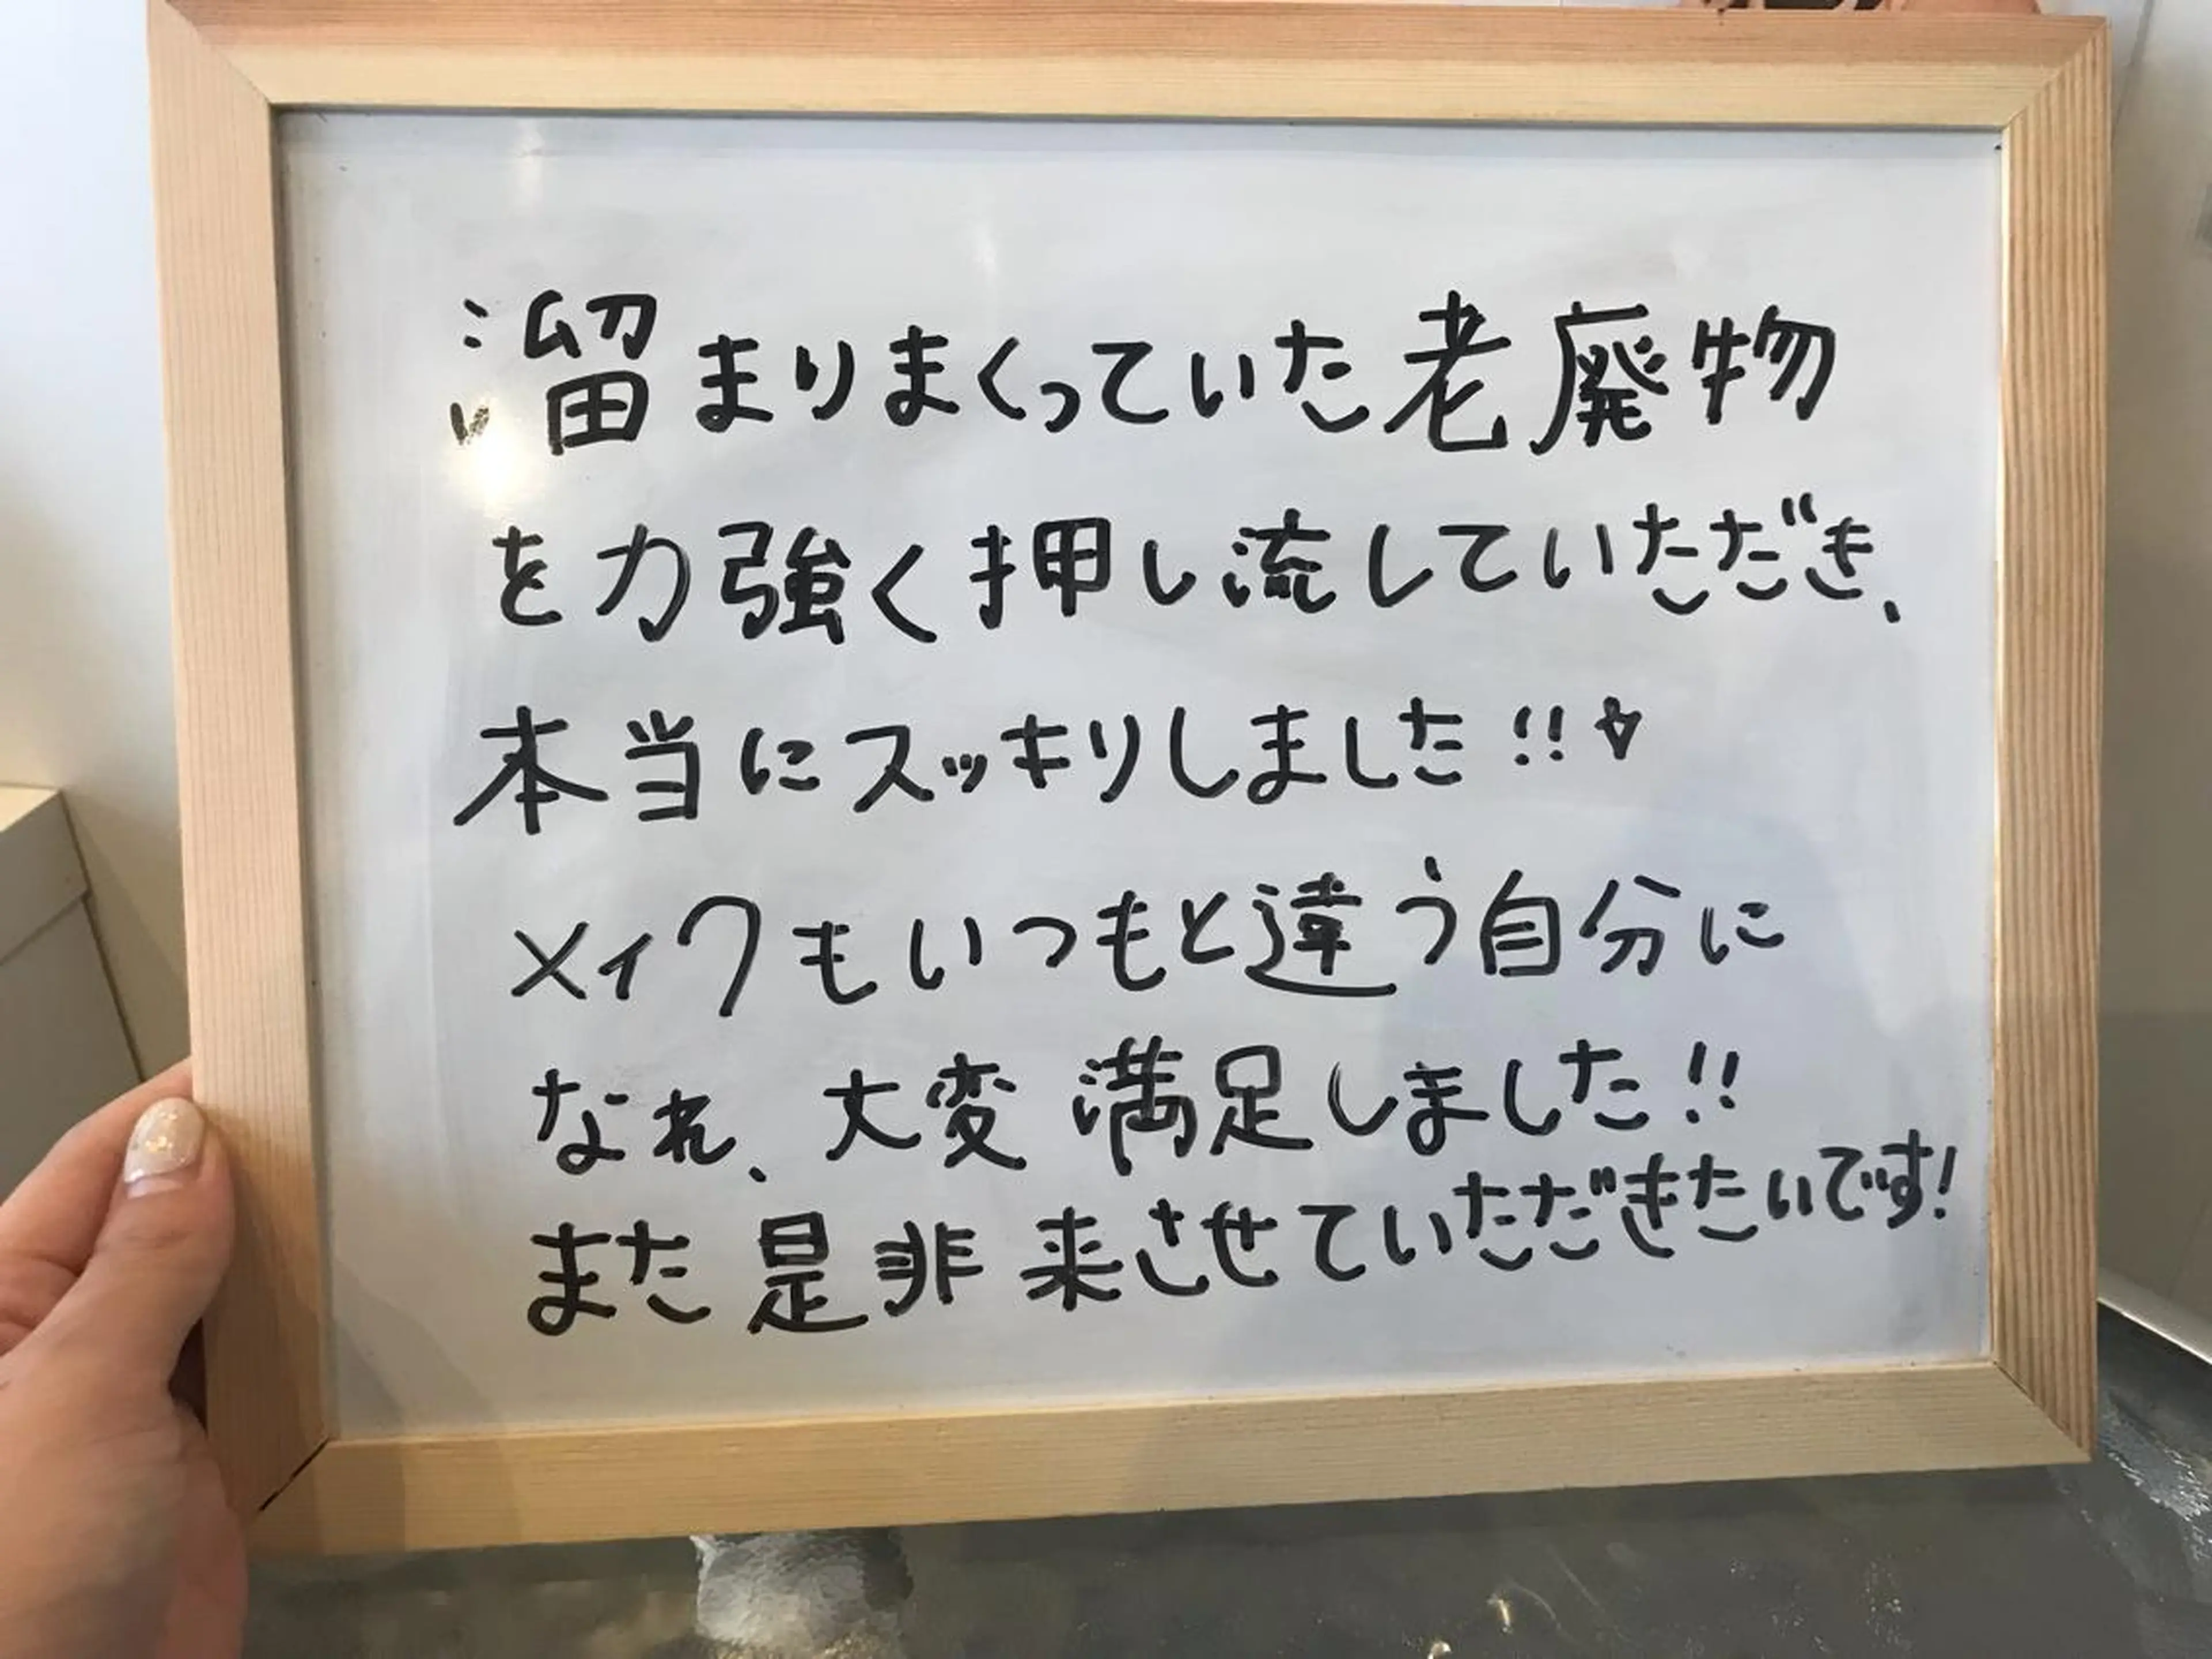 溜まりまくっていた老廃物
を力強く押し流していただき、
本当にスッキリしました!!☆
メイクもいつもと違う自分に
なれ、大変満足しました!!
また是非来させていただきたいです!